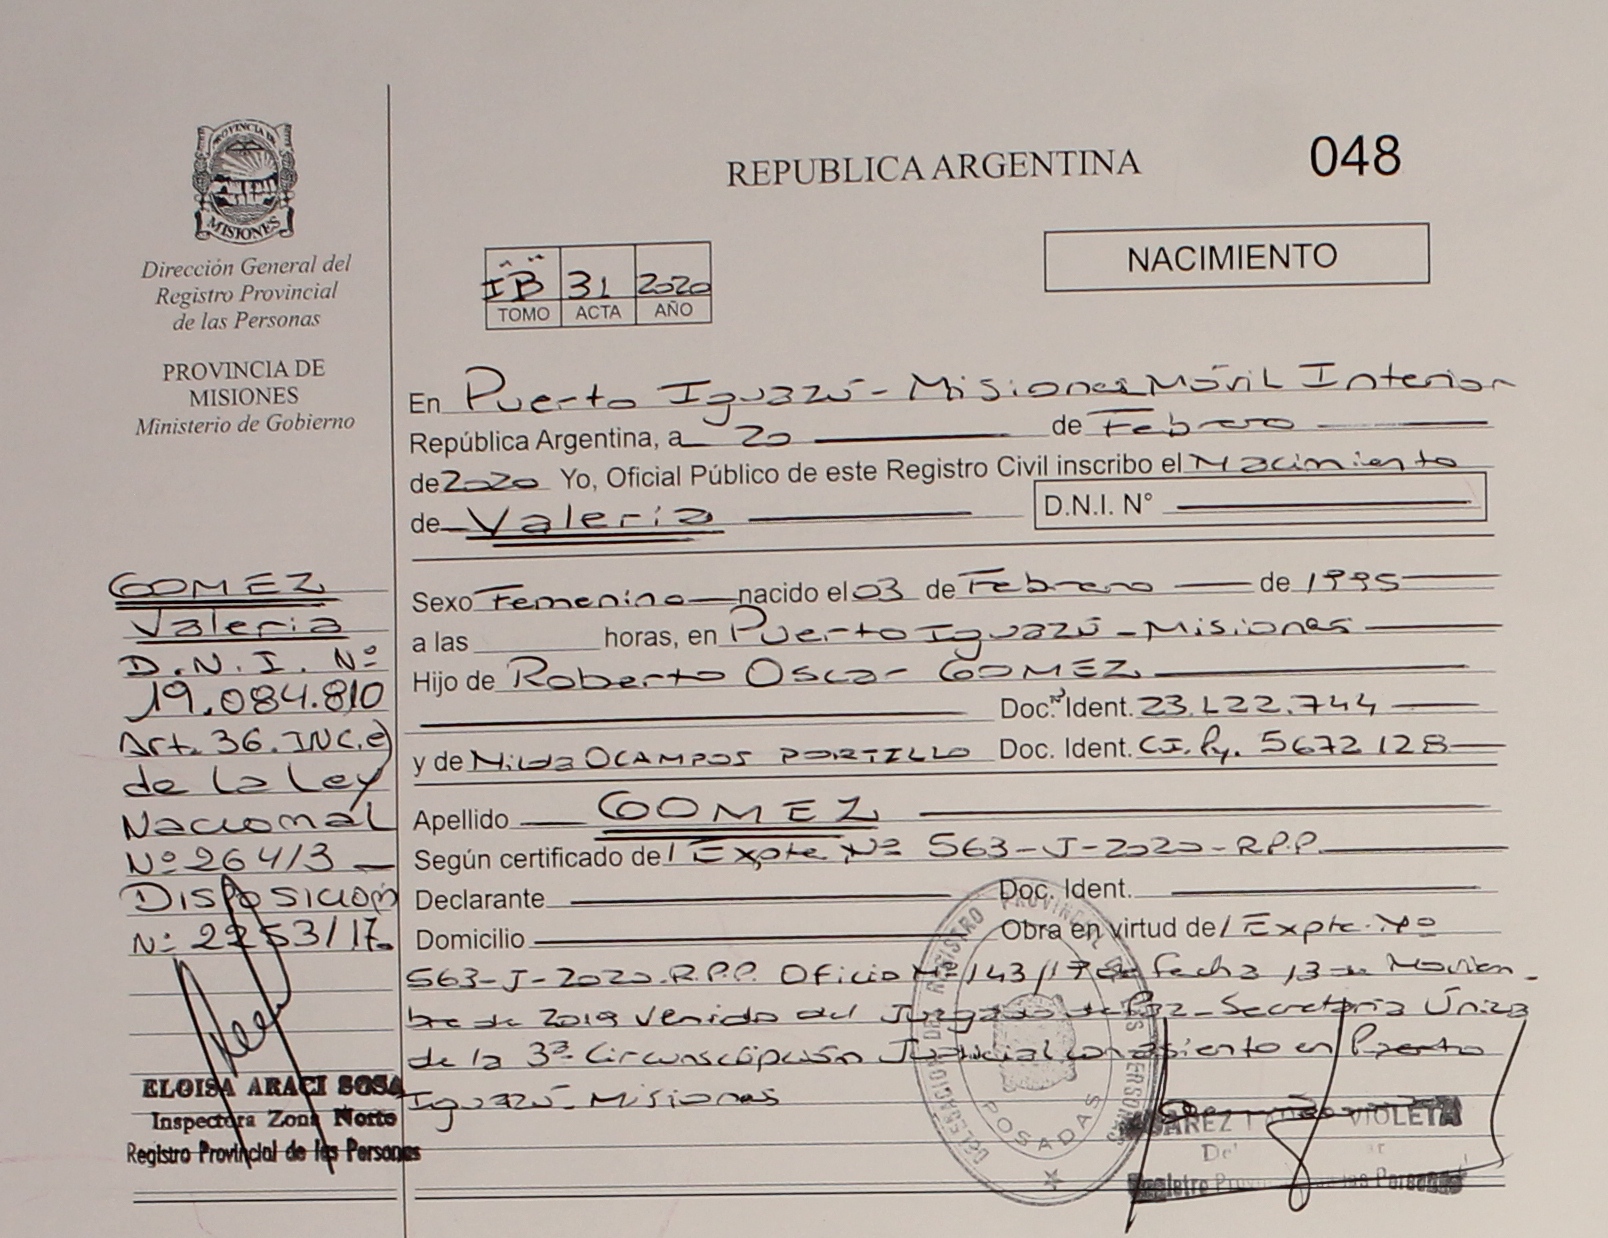 PROVINCIA DE
MISIONES
Dirección General del
Registro Provincial
de las Personas
PROVINCIA DE
MISIONES
Ministerio de Gobierno
REPUBLICA ARGENTINA
048
NACIMIENTO
IB 31 2020
TOMO ACTA AÑO
En Puerto Iguazú - Misiones Móvil Interior
República Argentina, a 20 de Febrero
de 2020 Yo, Oficial Público de este Registro Civil inscribo el Nacimiento
de Valeria D.N.I. N°
Sexo Femenino nacido el 03 de Febrero de 1995
a las horas, en Puerto Iguazú - Misiones
Hijo de Roberto Oscar GOMEZ
Doc. Ident. 23.122.744
y de Nilda OCAMPOS PORTILLO Doc. Ident. C.I. Py. 5672128
Apellido GOMEZ
Según certificado del Expte. Nº 563-J-2020-R.P.P.
Declarante Doc. Ident.
Domicilio Obra en virtud del Expte. Nº
563-J-2020-R.P.P. Oficio Nº 143/17 de fecha 13 de Noviem-
bre de 2019 venido del Juzgado de Paz - Secretaría Única
de la 3ª Circunscripción Judicial con asiento en Puerto
Iguazú - Misiones
GOMEZ
Valeria
D.N.I. Nº
19.084.810
Art. 36. INC.e)
de la Ley
Nacional
Nº 26413
DISPOSICION
Nº 2253/17.
ELOISA ARACI SOSA
Inspectora Zona Norte
Registro Provincial de las Personas
REGISTRO PROVINCIAL DE LAS PERSONAS
DELEGACION
POSADAS
VIOLETA
Registro Provincial de las Personas